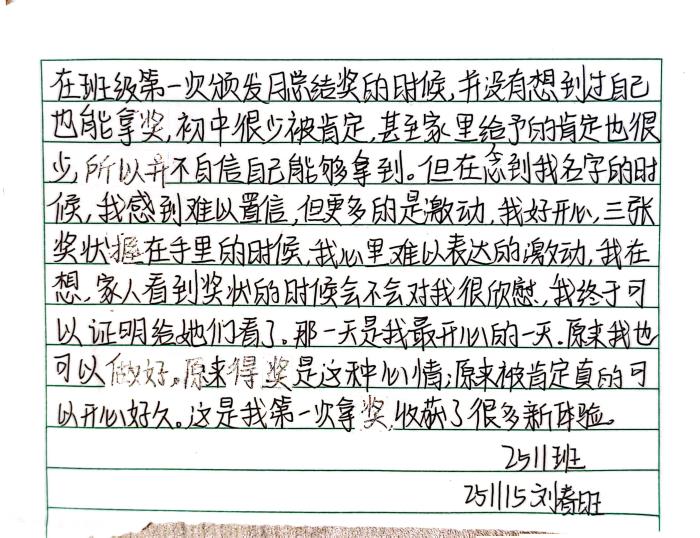 在班级第一次颁发月总结奖的时候,并没有想到过自己
也能拿奖,初中很少被肯定,甚至家里给予的肯定也很
少,所以并不自信自己能够拿到。但在念到我名字的时
候,我感到难以置信,但更多的是激动,我好开心,三张
奖状握在手里的时候,我心里难以表达的激动,我在
想,家人看到奖状的时候会不会对我很欣慰,我终于可
以证明给她们看了。那一天是我最开心的一天。原来我也
可以做好。原来得奖是这种心情;原来被肯定真的可
以开心好久。这是我第一次拿奖,收获了很多新体验。
2511班
251115刘春旺